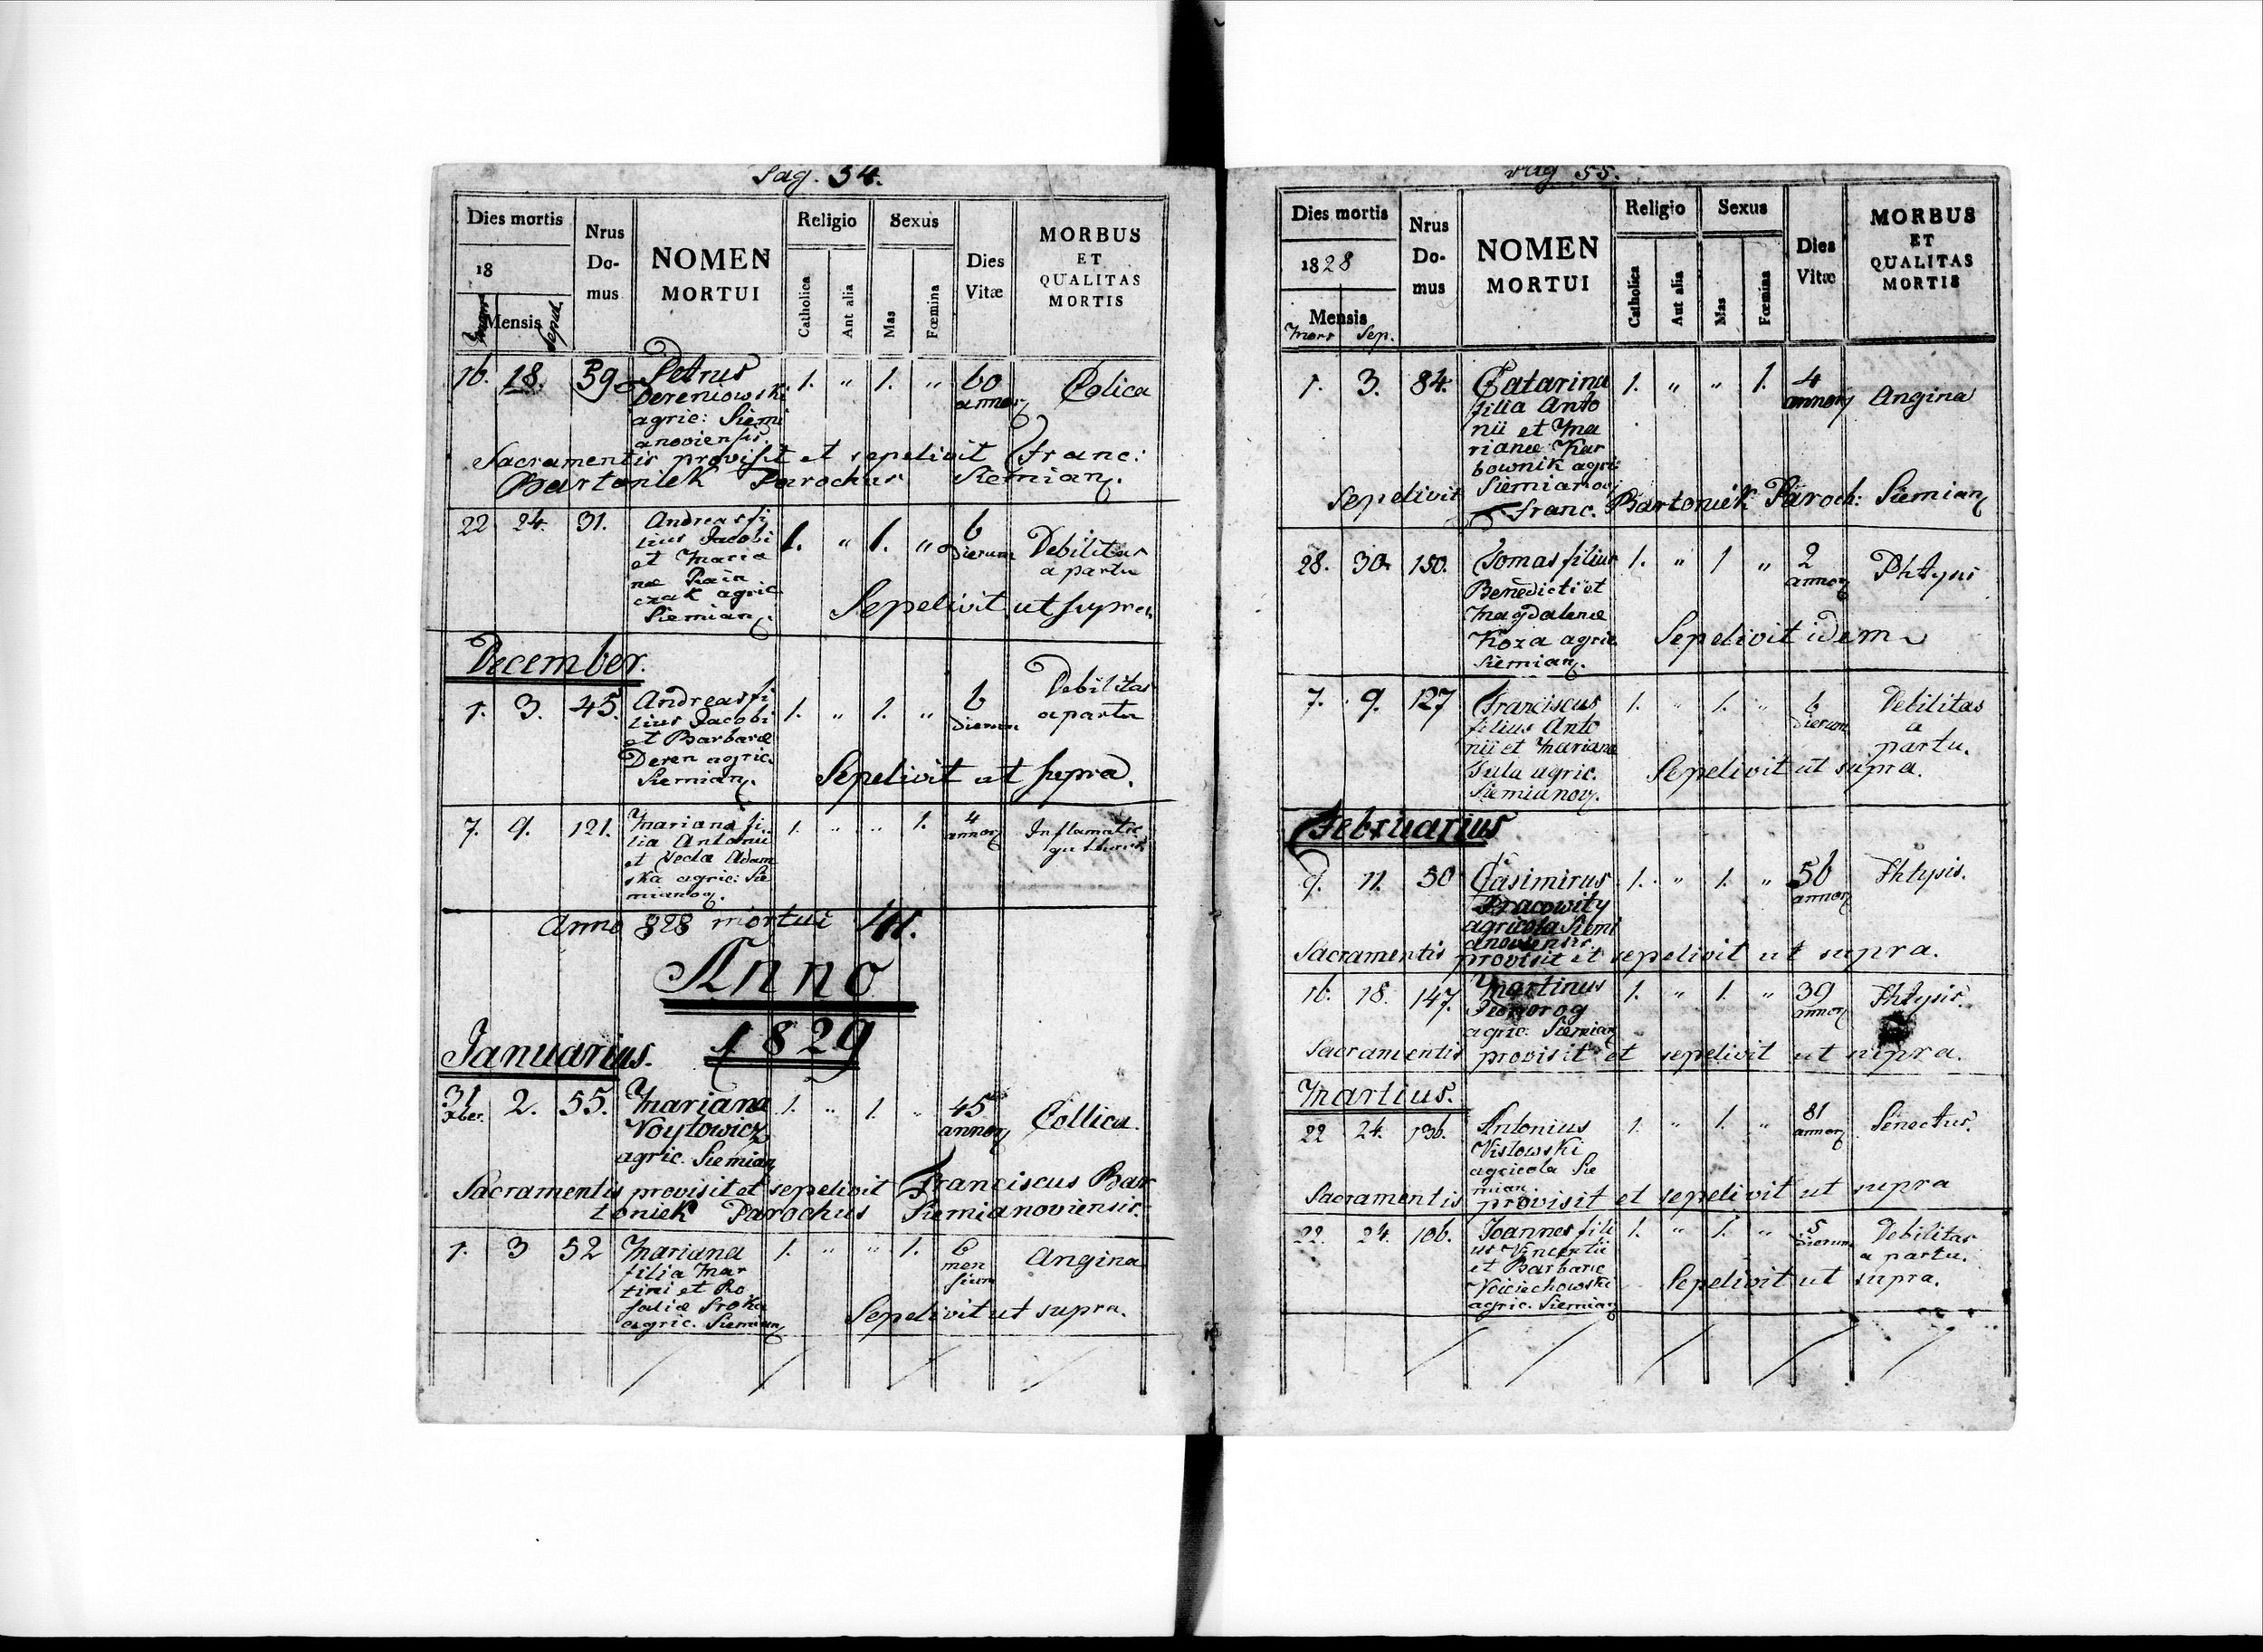 Pag. 54.
Dies mortis
Nrus Domus
NOMEN MORTUI
Religio
Sexus
Dies Vitæ
MORBUS ET QUALITAS MORTIS
18
Mensis
Sepul.
Catholica
Aut alia
Mas
Fœmina
16. 18. 59 Petrus 1. " 1. " 60 Colica
Dereniowski annor
agric: Siemi
anoviensis.
Sacramentis provisit et sepelivit Franc:
Bartoniek Parochus Siemian.
22 24. 31. Andreas fi 1. " 1. " 6 Debilitas
lius Jacobi dierum a partu
et Maria
næ
czak agric
Siemian. Sepelivit ut supra
December.
1. 3. 45. Andreas fi 1. " 1. " 6 Debilitas
lius Jacobi dierum a partu
et Barbaræ
Deren agric.
Siemian. Sepelivit ut supra.
7. 9. 121. Mariana fi 1. " " 1. 4 Inflamatio
lia Antonii annor gutturis
et Adam
ska agric: Sie
mianov.
Anno 828 mortui
Anno
1829
Januarius.
31 2. 55. Mariana 1. " 1. " 45 Collica
Xber. Voytowicz annor
agric. Siemian
Sacramentis provisit et sepelivit Franciscus Bar
toniek Parochus Siemianoviensis.
1. 3 52 Mariana 1. " " 1. 6 Angina
filia Mar men
tini et Ro sium
saliæ Sroka
agric. Siemian Sepelivit ut supra.
Pag 55.
Dies mortis
Nrus Domus
NOMEN MORTUI
Religio
Sexus
Dies Vitæ
MORBUS ET QUALITAS MORTIS
1828
Mensis
Mors Sep.
Catholica
Aut alia
Mas
Fœmina
1. 3. 84. Catarina 1. " " 1. 4 Angina
filia Anto annor
nii et Ma
rianæ Kar
bownik agri:
Siemianov
Sepelivit Franc. Bartoniek Paroch: Siemian
28. 30. 150. Tomas filius 1. " 1 " 2 Phtysis
Benedicti et annor
Magdalenæ
Koza agric
Siemian. Sepelivit idem
7. 9. 127 Franciscus 1. " 1. " 6 Debilitas
filius Anto dierum a
nii et Mariana partu.
agric. Sepelivit ut supra.
Siemianov.
Februarius
9. 11. 50 Casimirus 1. " 1. " 56 Phtysis.
Pracowity annor
agricola Siemi
anoviensis.
Sacramentis provisit et sepelivit ut supra.
16. 18. 147. Martinus 1. " 1. " 39 Phtysis.
annor
agric: Siemian
Sacramentis provisit et sepelivit ut supra.
Martius.
22 24. 136. Antonius 1. " 1. " 81 Senectus.
Vislowski annor
agricola Sie
mian.
Sacramentis provisit et sepelivit ut supra
22. 24. 106. Joannes fili 1. " 1. " 5 Debilitas
us Vincentii dierum a partu.
et Barbaræ
Voiciechowski Sepelivit ut supra.
agric. Siemian